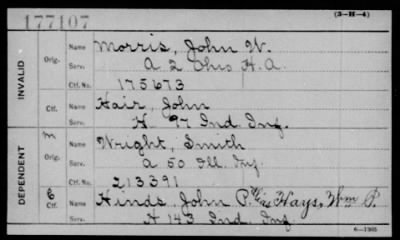 177107
(3-H-4)
INVALID
Orig. Name Morris, John W.
Serv. A 2 Ohio H. A.
Ctf. No. 175673
Ctf. Name Hair, John
Serv. H 97 Ind. Inf.
DEPENDENT
m Orig. Name Wright, Smith
Serv. A 50 Ill. Inf.
Ctf. No. 213391
C Ctf. Name Hinds, John P. alias Hays, Wm P.
Serv. H 143 Ind. Inf.
6-1305